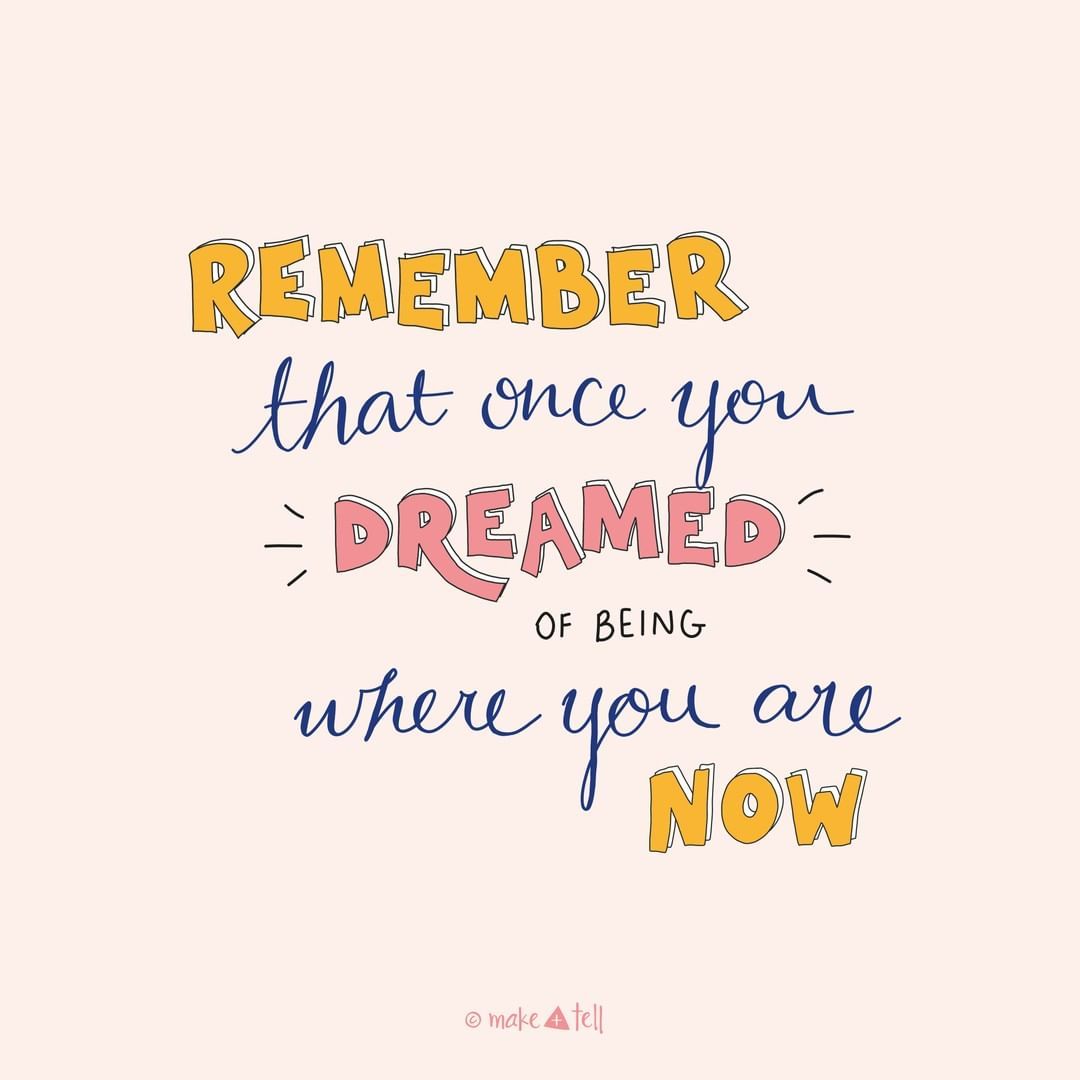 REMEMBER
that once you
DREAMED
OF BEING
where you are
NOW
© make + tell